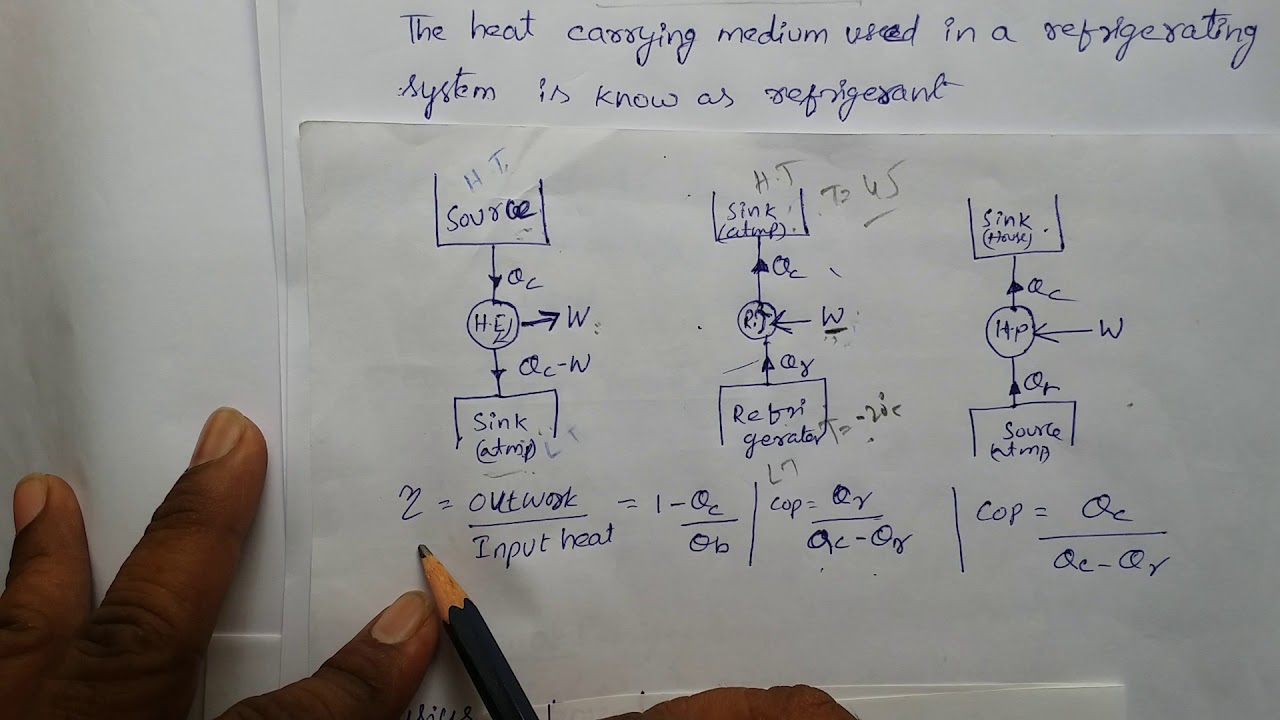 The heat carrying medium used in a refrigerating
system is know as refrigerant
H T1
Source
Qc
H.E
W
Qc-W
Sink
(atmp)
H.T
T= 45
Sink
(atmp)
Qc
W
Qr
Refri
gerater
T= -20c
Sink
(House)
Qc
H.P
W
Qr
Source
(atmp)
η = outwork / Input heat = 1 - Qc / Qb
cop = Qr / Qc - Qr
cop = Qc / Qc - Qr